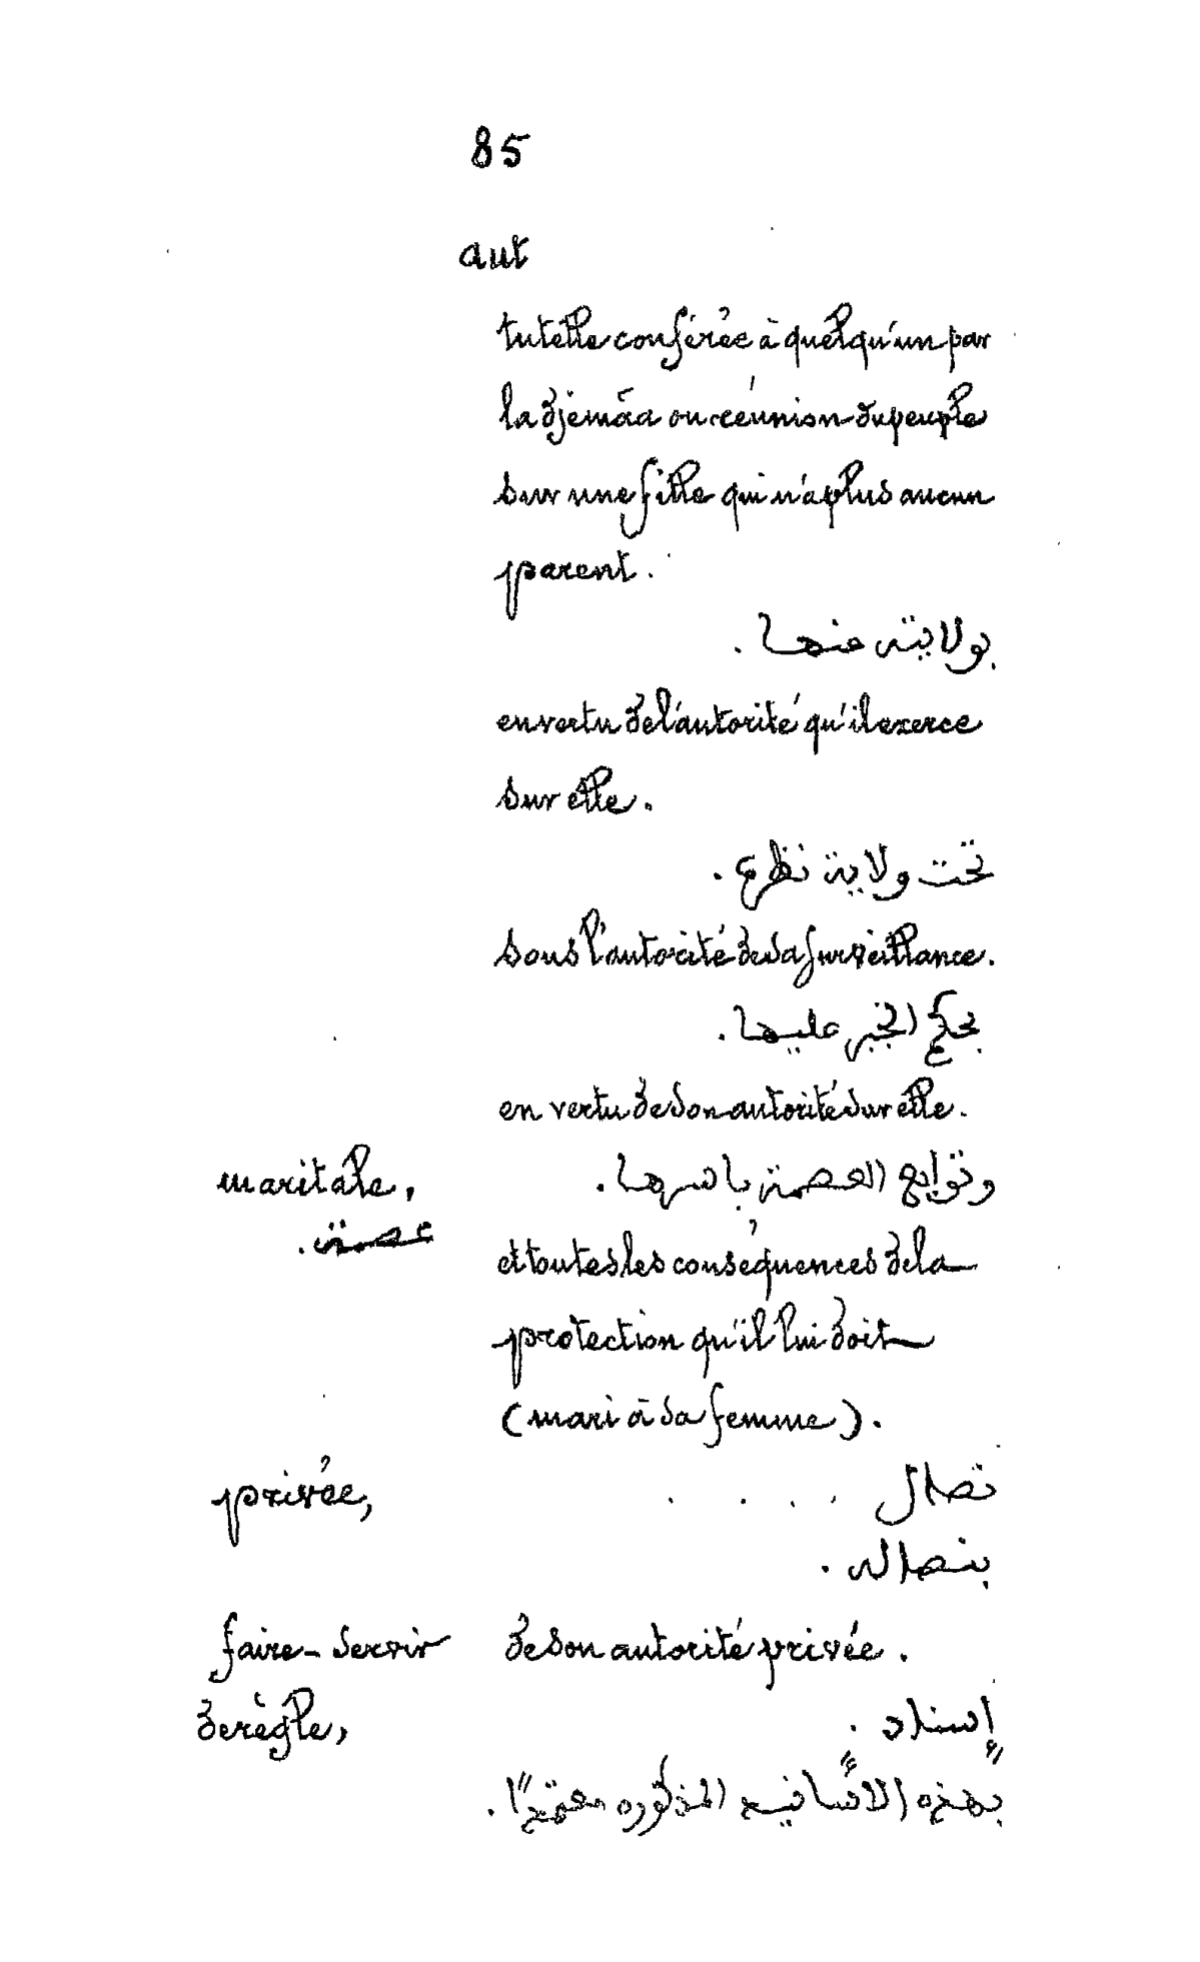 85
aut
tutelle conférée à quelqu'un par
la djemâa ou réunion du peuple
sur une fille qui n'a plus aucun
parent.
بولايته عنها .
en vertu de l'autorité qu'il exerce
sur elle.
تحت ولاية نظره .
sous l'autorité de sa surveillance.
بحكم الجبر عليها .
en vertu de son autorité sur elle.
maritale, وتوابع العصمة باسرها .
عصمة .
et toutes les conséquences de la
protection qu'il lui doit
(mari à sa femme).
privée, . . . .
de son autorité privée.
faire-servir
de règle,
إسناد .
بهذه المذكوره